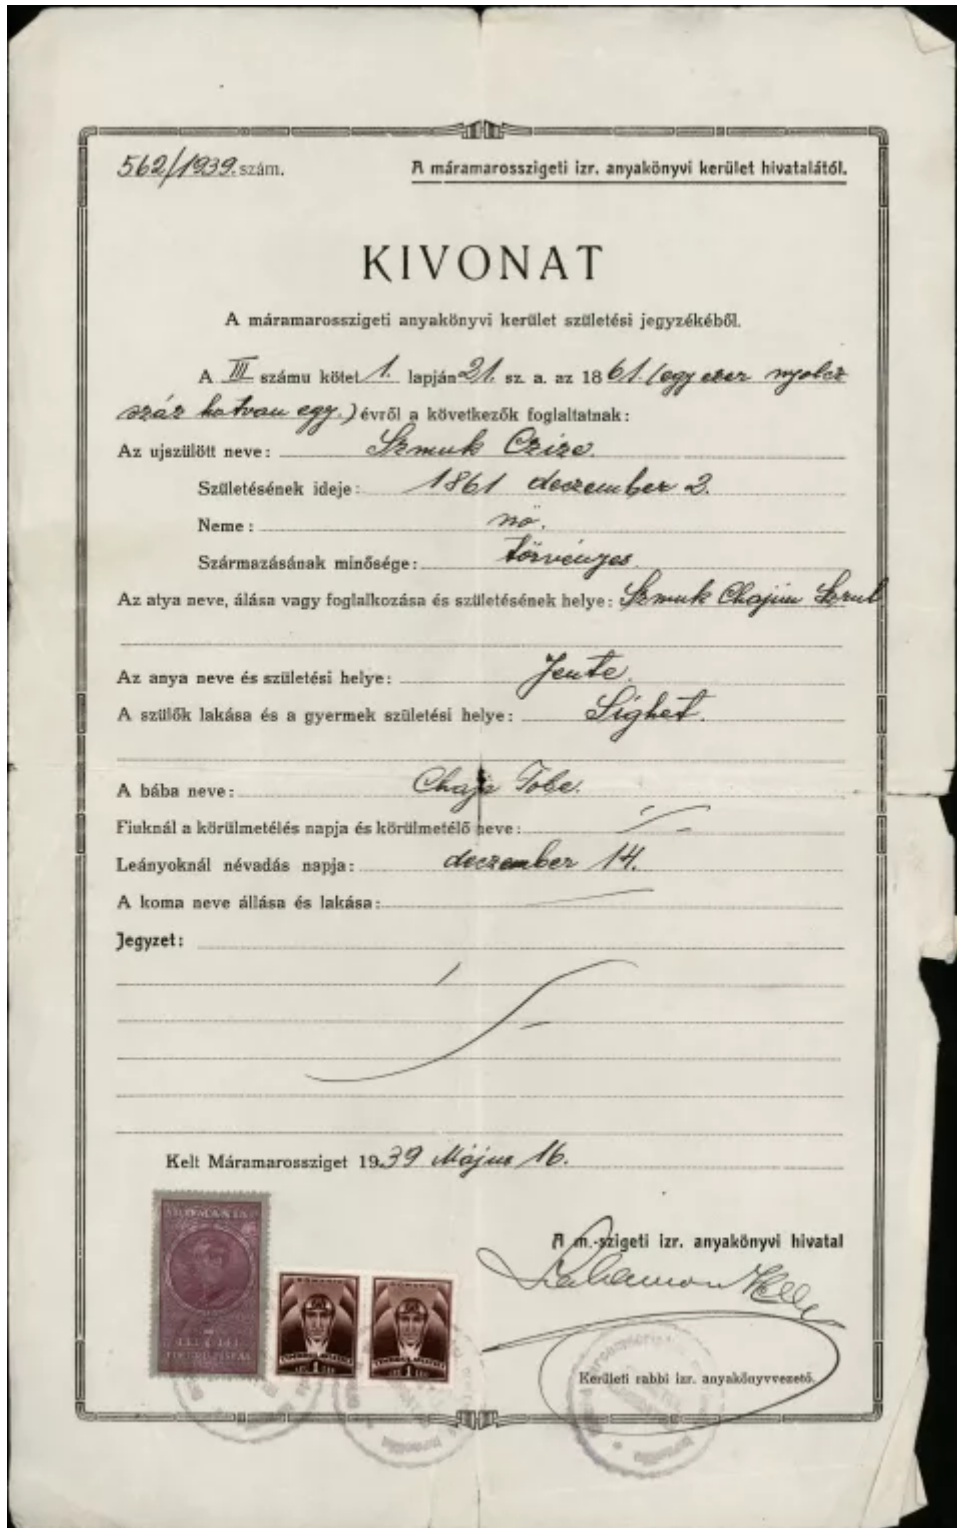 562/1939. szám.
A máramarosszigeti izr. anyakönyvi kerület hivatalától.
KIVONAT
A máramarosszigeti anyakönyvi kerület születési jegyzékéből.
A III számu kötet 1. lapján 21. sz. a. az 1861. (egy ezer nyolcz
száz hatvan egy.) évről a következők foglaltatnak:
Az ujszülött neve: Szmuk Czize.
Születésének ideje: 1861 deczember 2.
Neme: nö.
Származásának minősége: törvényes.
Az atya neve, álása vagy foglalkozása és születésének helye: Szmuk Chajim Szrul
Az anya neve és születési helye: Jente.
A szülők lakása és a gyermek születési helye: Sighet.
A bába neve: Chaje Tobe.
Fiuknál a körülmetélés napja és körülmetélő neve:
Leányoknál névadás napja: deczember 14.
A koma neve állása és lakása:
Jegyzet:
Kelt Máramarossziget 1939 Május 16.
A m.-szigeti izr. anyakönyvi hivatal
Kerületi rabbi izr. anyakönyvvezető.
ROMANIA
ROMANIA ROMANIA
1 LEU 1 LEU